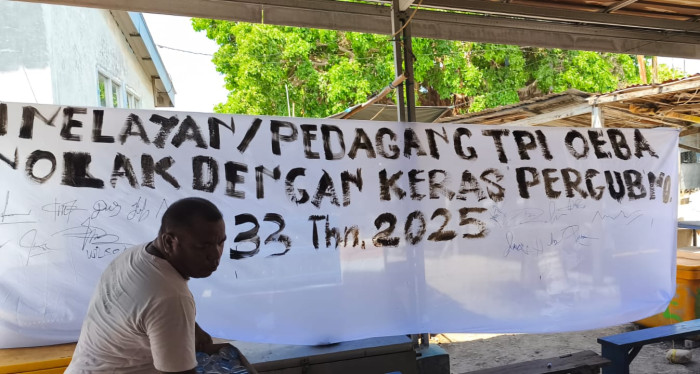 NELAYAN/PEDAGANG TPI OEBA
NOLAK DENGAN KERAS PERGUB NO.
33 Thn, 2025